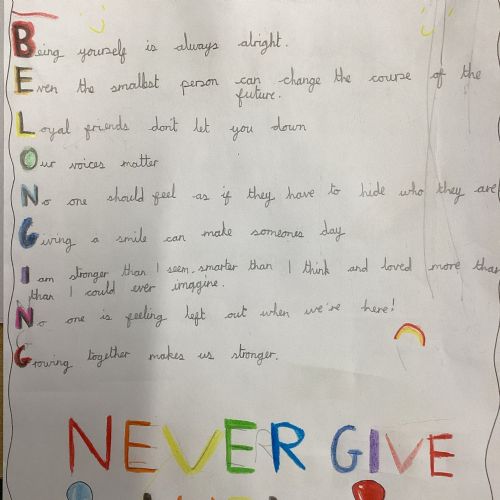 Being yourself is always alright.
Even the smallest person can change the course of the
future.
Loyal friends don't let you down
Our voices matter
No one should feel as if they have to hide who they are
Giving a smile can make someones day
I am stronger than I seem, smarter than I think and loved more than
than I could ever imagine.
No one is feeling left out when we're here!
Growing together makes us stronger.
NEVER GIVE